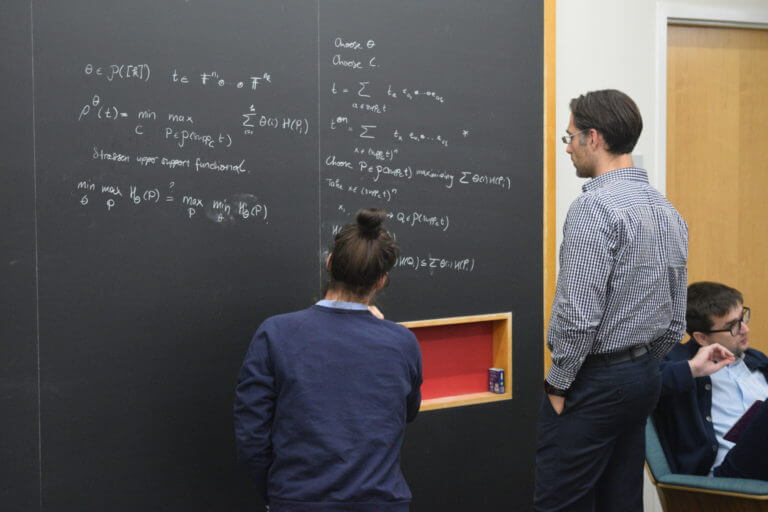 θ ∈ P([k]) t ∈ F^{n_1} ⊗ … ⊗ F^{n_k}
ρ^θ(t) = min_C max_{P ∈ P(supp_C t)} Σ_{i=1}^{k} θ(i) H(P_i)
Strassen upper support functional.
min_θ max_P H_θ(P) ?= max_P min_θ H_θ(P)
Choose θ
Choose C.
t = Σ_{α ∈ supp_C t} t_α e_{α_1} ⊗ … ⊗ e_{α_k}
t^{⊗n} = Σ_{x ∈ (supp_C t)^n} t_x e_{x_1} ⊗ … ⊗ *
Choose P ∈ P(supp_C t) maximizing Σ θ(i) H(P_i)
Take x ∈ (supp_C t)^n
x_1 → Q ∈ P(supp_C t)
H(Q_i) ≤ Σ θ(i) H(P_i)